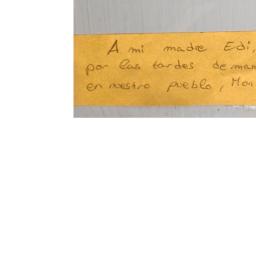 A mi madre Edi,
por las tardes de
en nuestro pueblo,